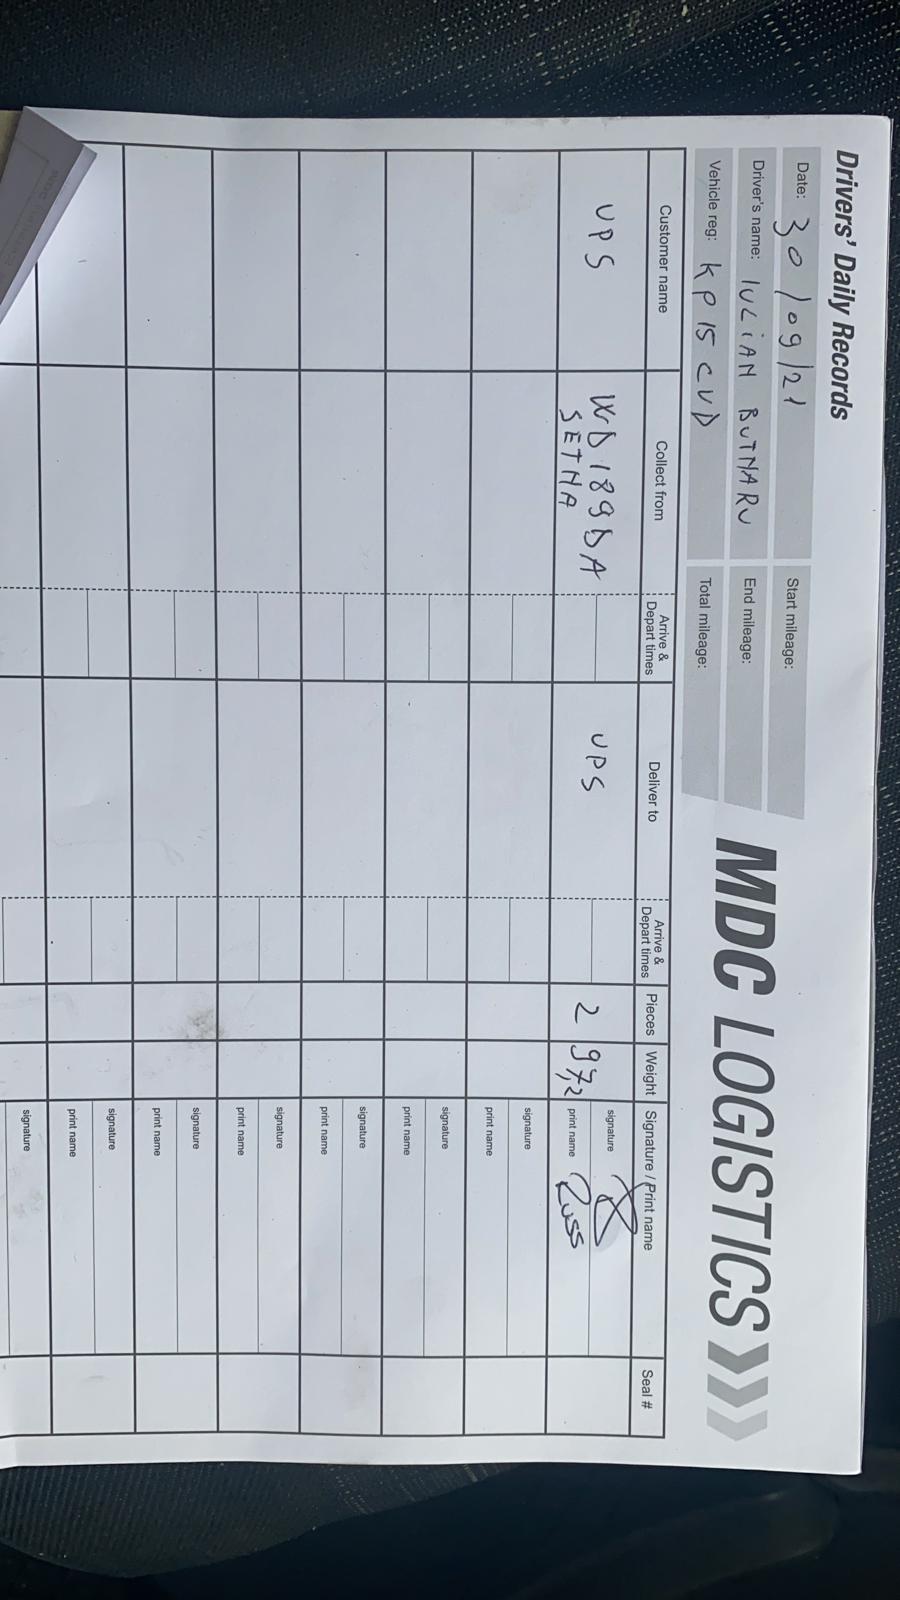 Drivers' Daily Records
MDC LOGISTICS
Date: 30/09/21
Start mileage:
Driver's name: IULIAN BUTNARU
End mileage:
Vehicle reg: KP15 CUD
Total mileage:
Customer name
Collect from
Arrive &
Depart times
Deliver to
Arrive &
Depart times
Pieces
Weight
Signature / Print name
Seal #
UPS
WD189DA
SETNA
UPS
2
97,2
signature
print name Russ
signature
print name
signature
print name
signature
print name
signature
print name
signature
print name
signature
print name
signature